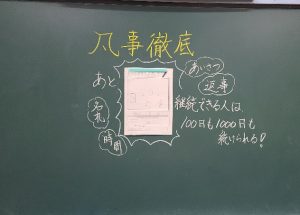 凡事徹底
あいさつ
返事
あと
名札
時間
継続できる人は
100日も1000日も
続けられる!